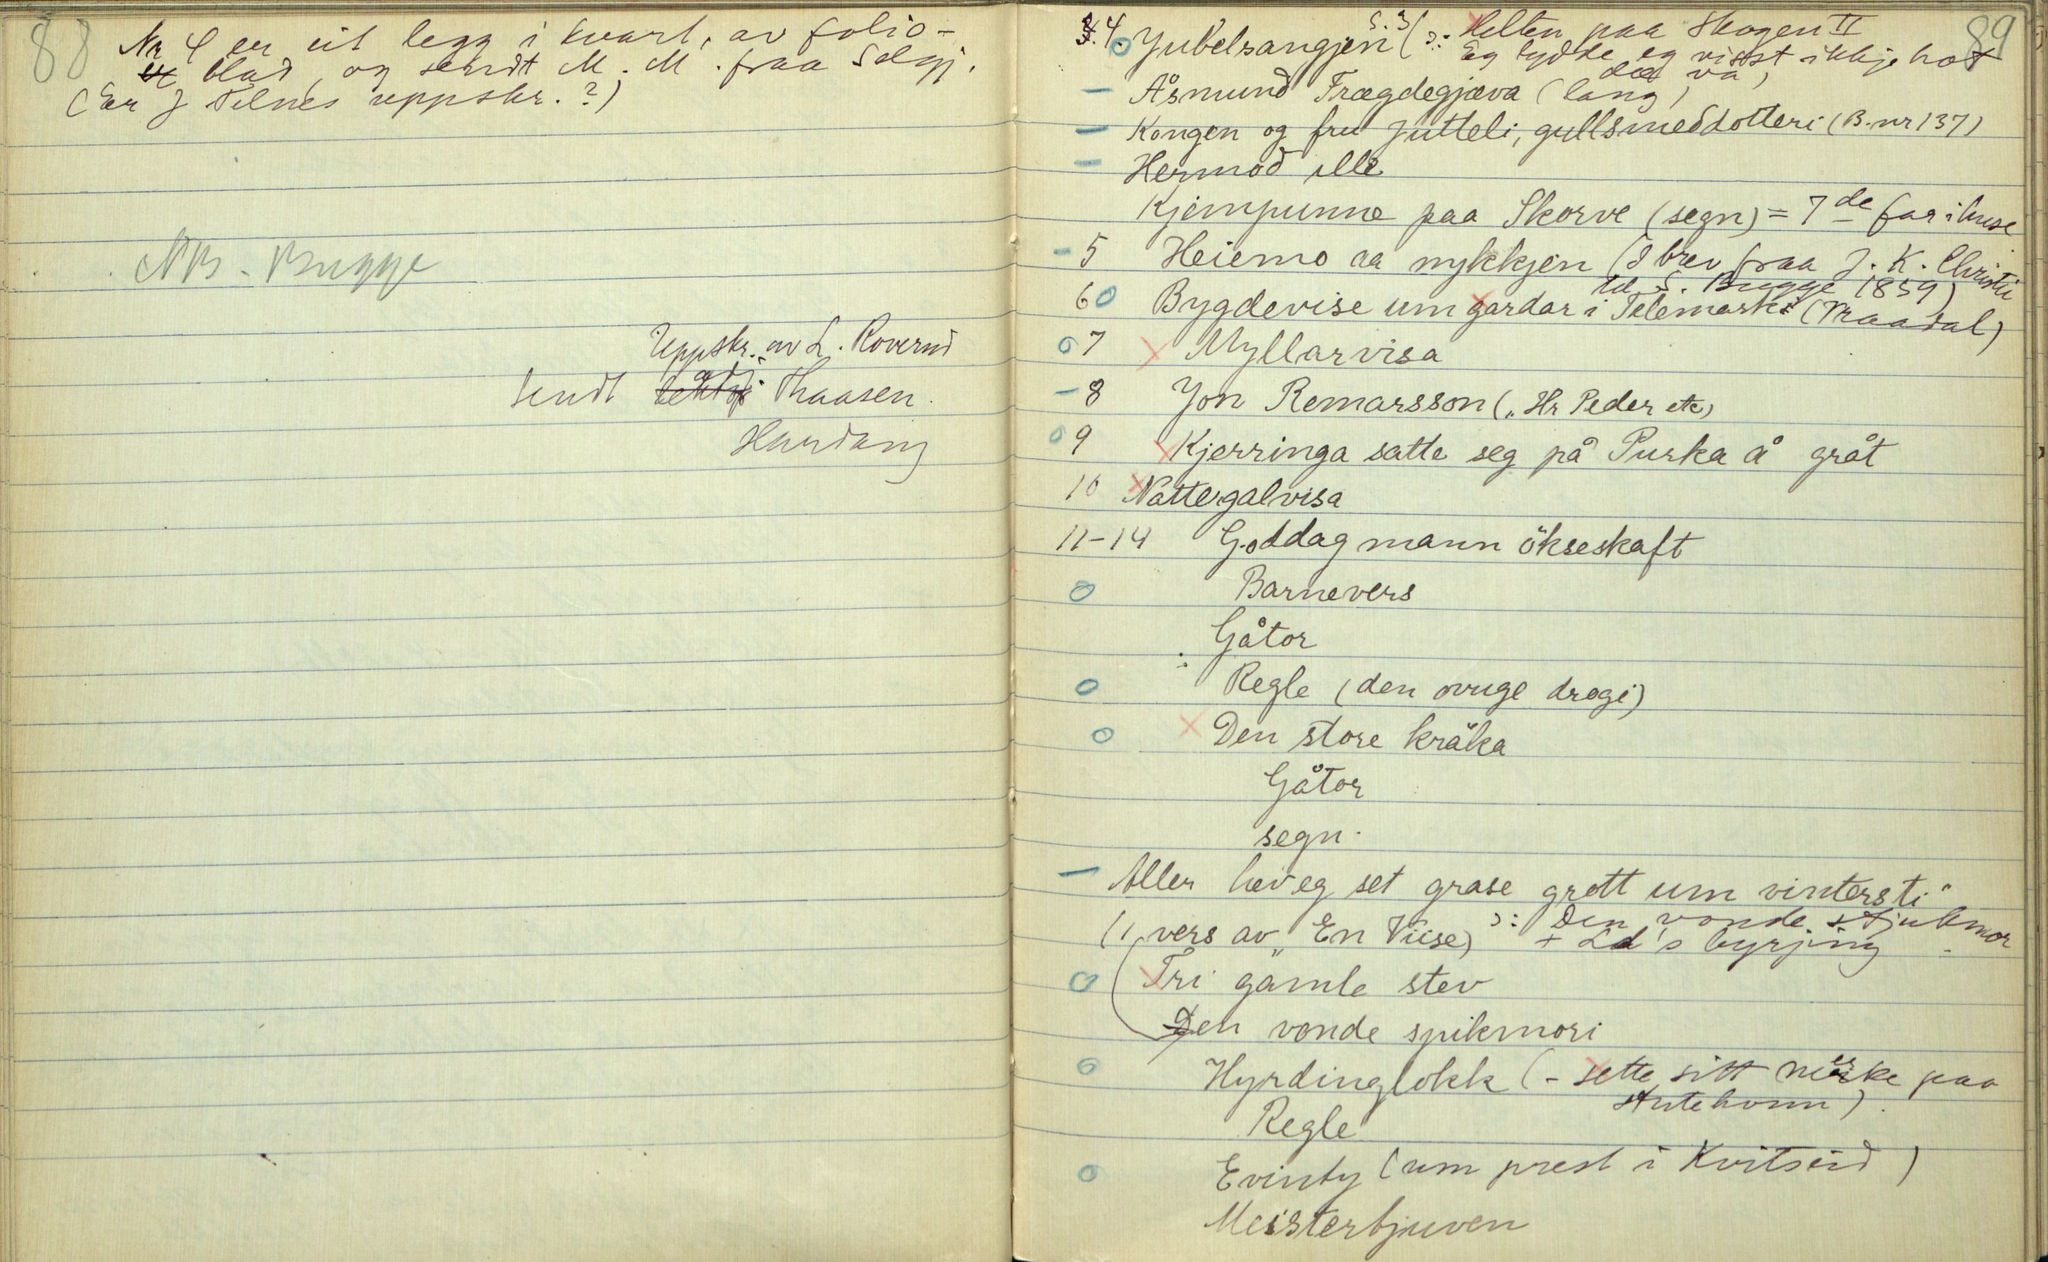 88
Nr 4 er eit legg i kvart, av folio-
blad, og sendt M. M. fraa Selgj.
(Er J Tilnes uppskr.?)
NB - Bugge
Uppskr. av L. Roverud
sendt Thaasen.
Hardang
89
4. Jubelsangjen S. 3 (ɔ: Helten paa Skogen II
Eg lydde eg visst ikkje hot
dæ va,
Åsmund Frægdegjæva (lang)
Kongen og fru Jutteli, gullsmeddotteri (B. nr 137)
Hermod ille
Kjempunne paa Skorve (segn) = 7de far i huse
- 5 Heiemo aa nykkjen (I brev fraa J. K. Christie
til S. Bugge 1859)
6 0 Bygdevise um gardar i Telemark (Mraadal)
0 7 Myllarvisa
- 8 Jon Remarsson („Hr Peder etc)
0 9 Kjerringa satte seg på Purka å gråt
10 Nattergalvisa
11-14 Goddag mann ökseskaft
0 Barnevers
Gåtor
0 Regle (den ovuge drogi)
0 Den store kråka
Gåtor
segn.
- Aller hev eg set grase grott um vintersti"
(1 vers av „En Viise) ɔ: Den vonde stjukmor
+ Ld's byrjing
0 Tri gamle stev
Den vonde spikmori
0 Hyrdinglokk (- sette sitt merke paa
Regle
0 Evinty (um prest i Kvitseid)
Meistertjuven